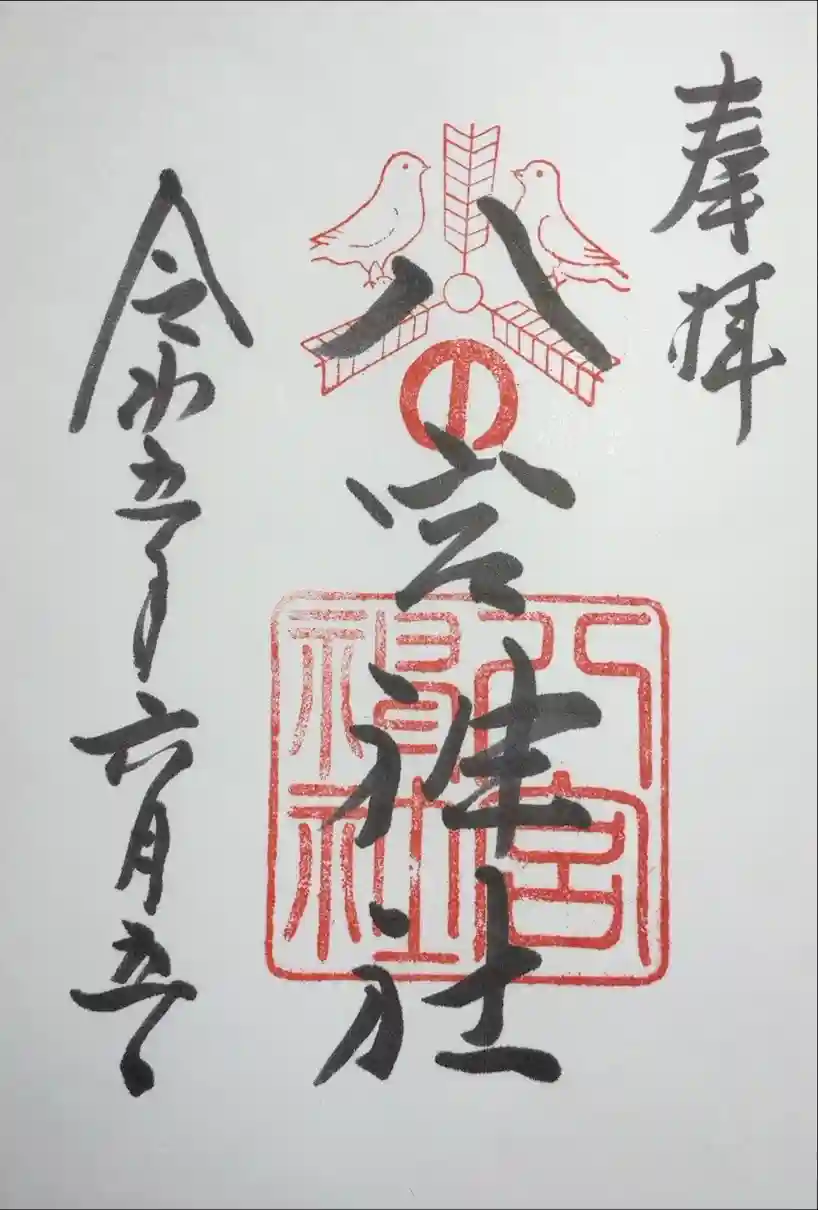 奉拝
八宮神社
令和五年六月五日
八宮
神社